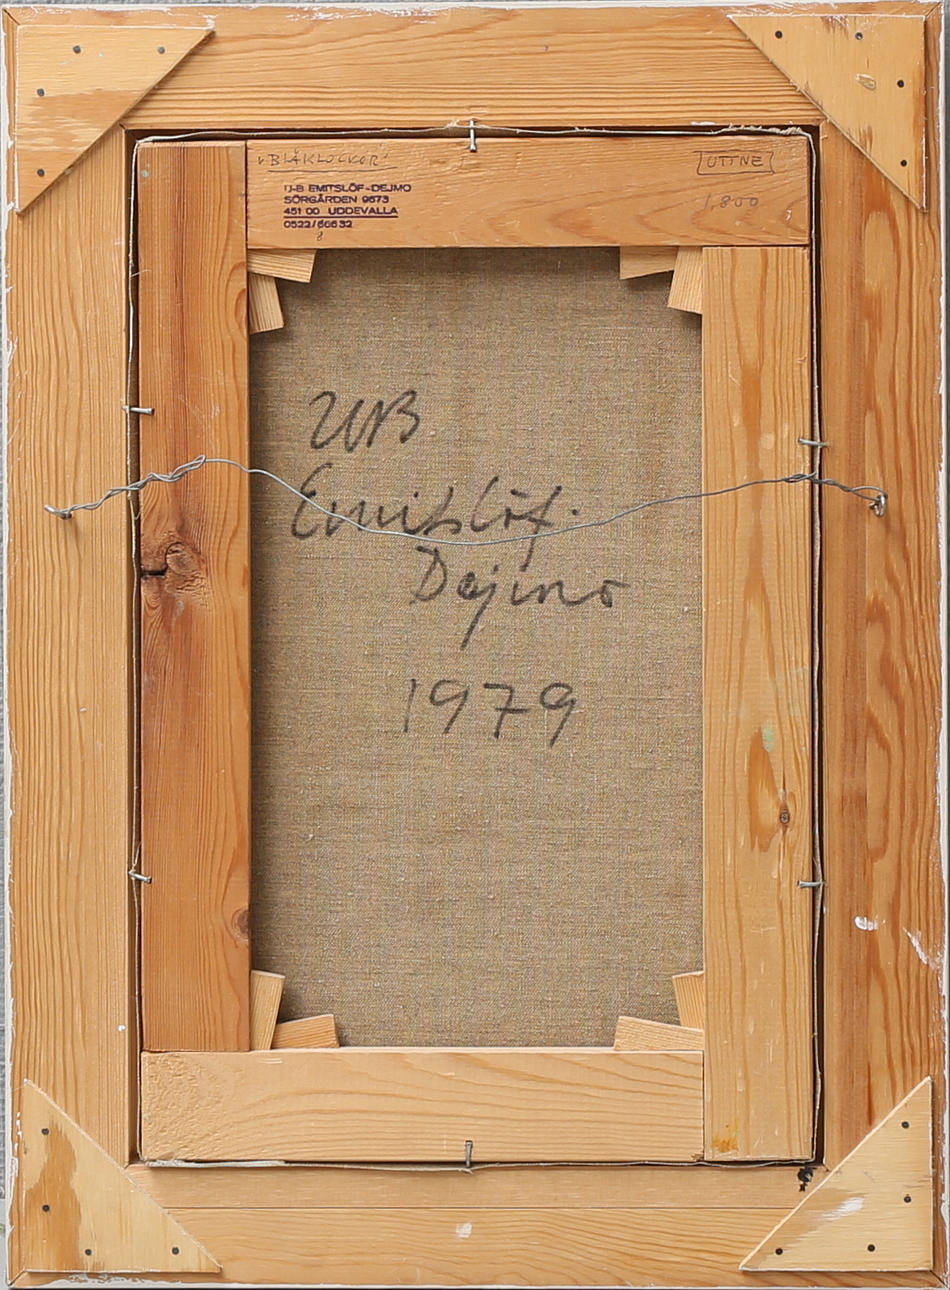 "BLÅKLOCKOR"
UTTNE
1,800
U-B EMITSLÖF-DEJMO
SÖRGÅRDEN 9573
451 00 UDDEVALLA
0522/60632
8
UB
Emitslöf-
Dejmo
1979